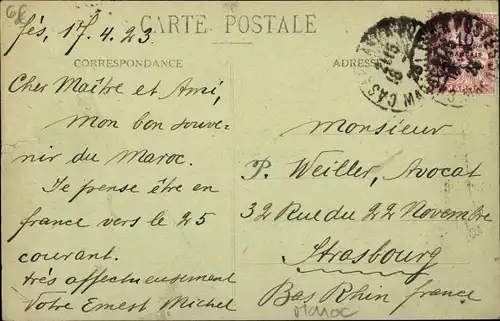 CARTE POSTALE
CORRESPONDANCE
ADRESSE
Fés, 17.4.23.
Cher Maître et Ami,
mon bon souve-
nir du Maroc.
Je pense être en
france vers le 25
courant.
très affectueusement
Votre Ernest Michel
Monsieur
P. Weiller, Avocat
32 Rue du 22 Novembre
Strasbourg
Bas Rhin france
Maroc